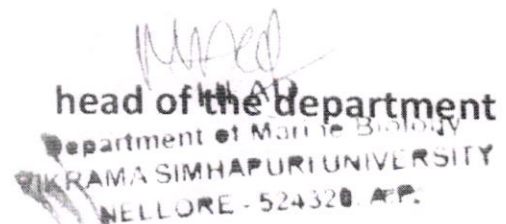 HEAD
head of the department
Department of Marine Biology
VIKRAMA SIMHAPURI UNIVERSITY
NELLORE - 524320. A.P.